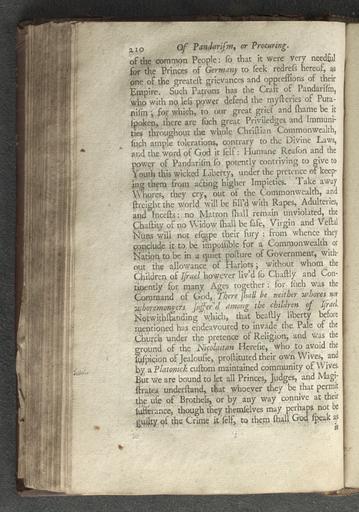 210 Of Pandarism, or Procuring.
of the common People: so that it were very needful
for the Princes of Germany to seek redress hereof, as
one of the greatest grievances and oppressions of their
Empire. Such Patrons has the Craft of Pandarism,
who with no less power defend the mysteries of Puta-
nism; for which, to our great grief and shame be it
spoken, there are such great Priviledges and Immuni-
ties throughout the whole Christian Commonwealth,
such ample tolerations, contrary to the Divine Laws,
and the word of God it self: Humane Reason and the
power of Pandarism so potently contriving to give to
Youth this wicked Liberty, under the pretence of keep-
ing them from acting higher Impieties. Take away
Whores, they cry, out of the Commonwealth, and
streight the world will be fill'd with Rapes, Adulteries,
and Incests: no Matron shall remain unviolated, the
Chastity of no Widow shall be safe, Virgin and Vestal
Nuns will not escape their fury: from whence they
conclude it to be impossible for a Commonwealth or
Nation to be in a quiet posture of Government, with-
out the allowance of Harlots; without whom the
Children of Israel however liv'd so Chastly and Con-
tinently for many Ages together: for such was the
Command of God, There shall be neither whores nor
whoremongers suffer'd among the children of Israel.
Notwithstanding which, that beastly liberty before
mentioned has endeavoured to invade the Pale of the
Church under the pretence of Religion, and was the
ground of the Nicolaitan Heresie, who to avoid the
suspicion of Jealousie, prostituted their own Wives, and
by a Platonick custom maintained community of Wives.
But we are bound to let all Princes, Judges, and Magi-
strates understand, that whoever they be that permit
the use of Brothels, or by any way connive at their
sufferance, though they themselves may perhaps not be
guilty of the Crime it self, to them shall God speak as